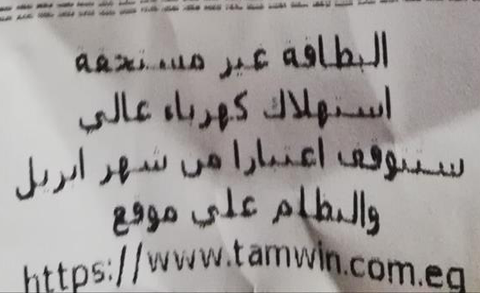 البطاقة غير مستحقة
استهلاك كهرباء عالي
ستتوقف اعتبارا من شهر ابريل
والتظلم على موقع
https://www.tamwin.com.eg